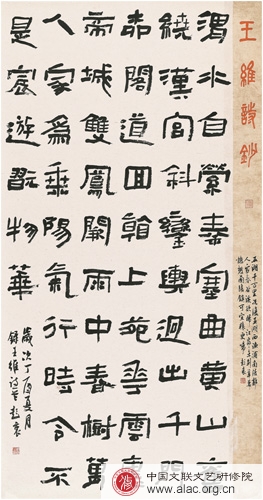 王維詩鈔
渭水自縈秦塞曲黄山舊
繞漢宮斜鑾輿迥出千門
柳閣道回看上苑花雲裏
帝城雙鳳闕雨中春樹萬
人家為乘陽氣行時令不
是宸遊翫物華
歲次丁酉夏月
錄王維詩
中国文联文艺研修院
www.alac.org.cn